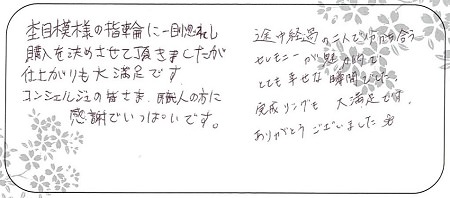 杢目模様の指輪に一目惚れし
購入を決めさせて頂きましたが
仕上がりも大満足です。
コンシェルジュの皆さま、職人の方に
感謝でいっぱいです。
途中経過の二人で分け合う
セレモニーが魅力的で、
とても幸せな瞬間でした。
完成リングも大満足です。
ありがとうございました